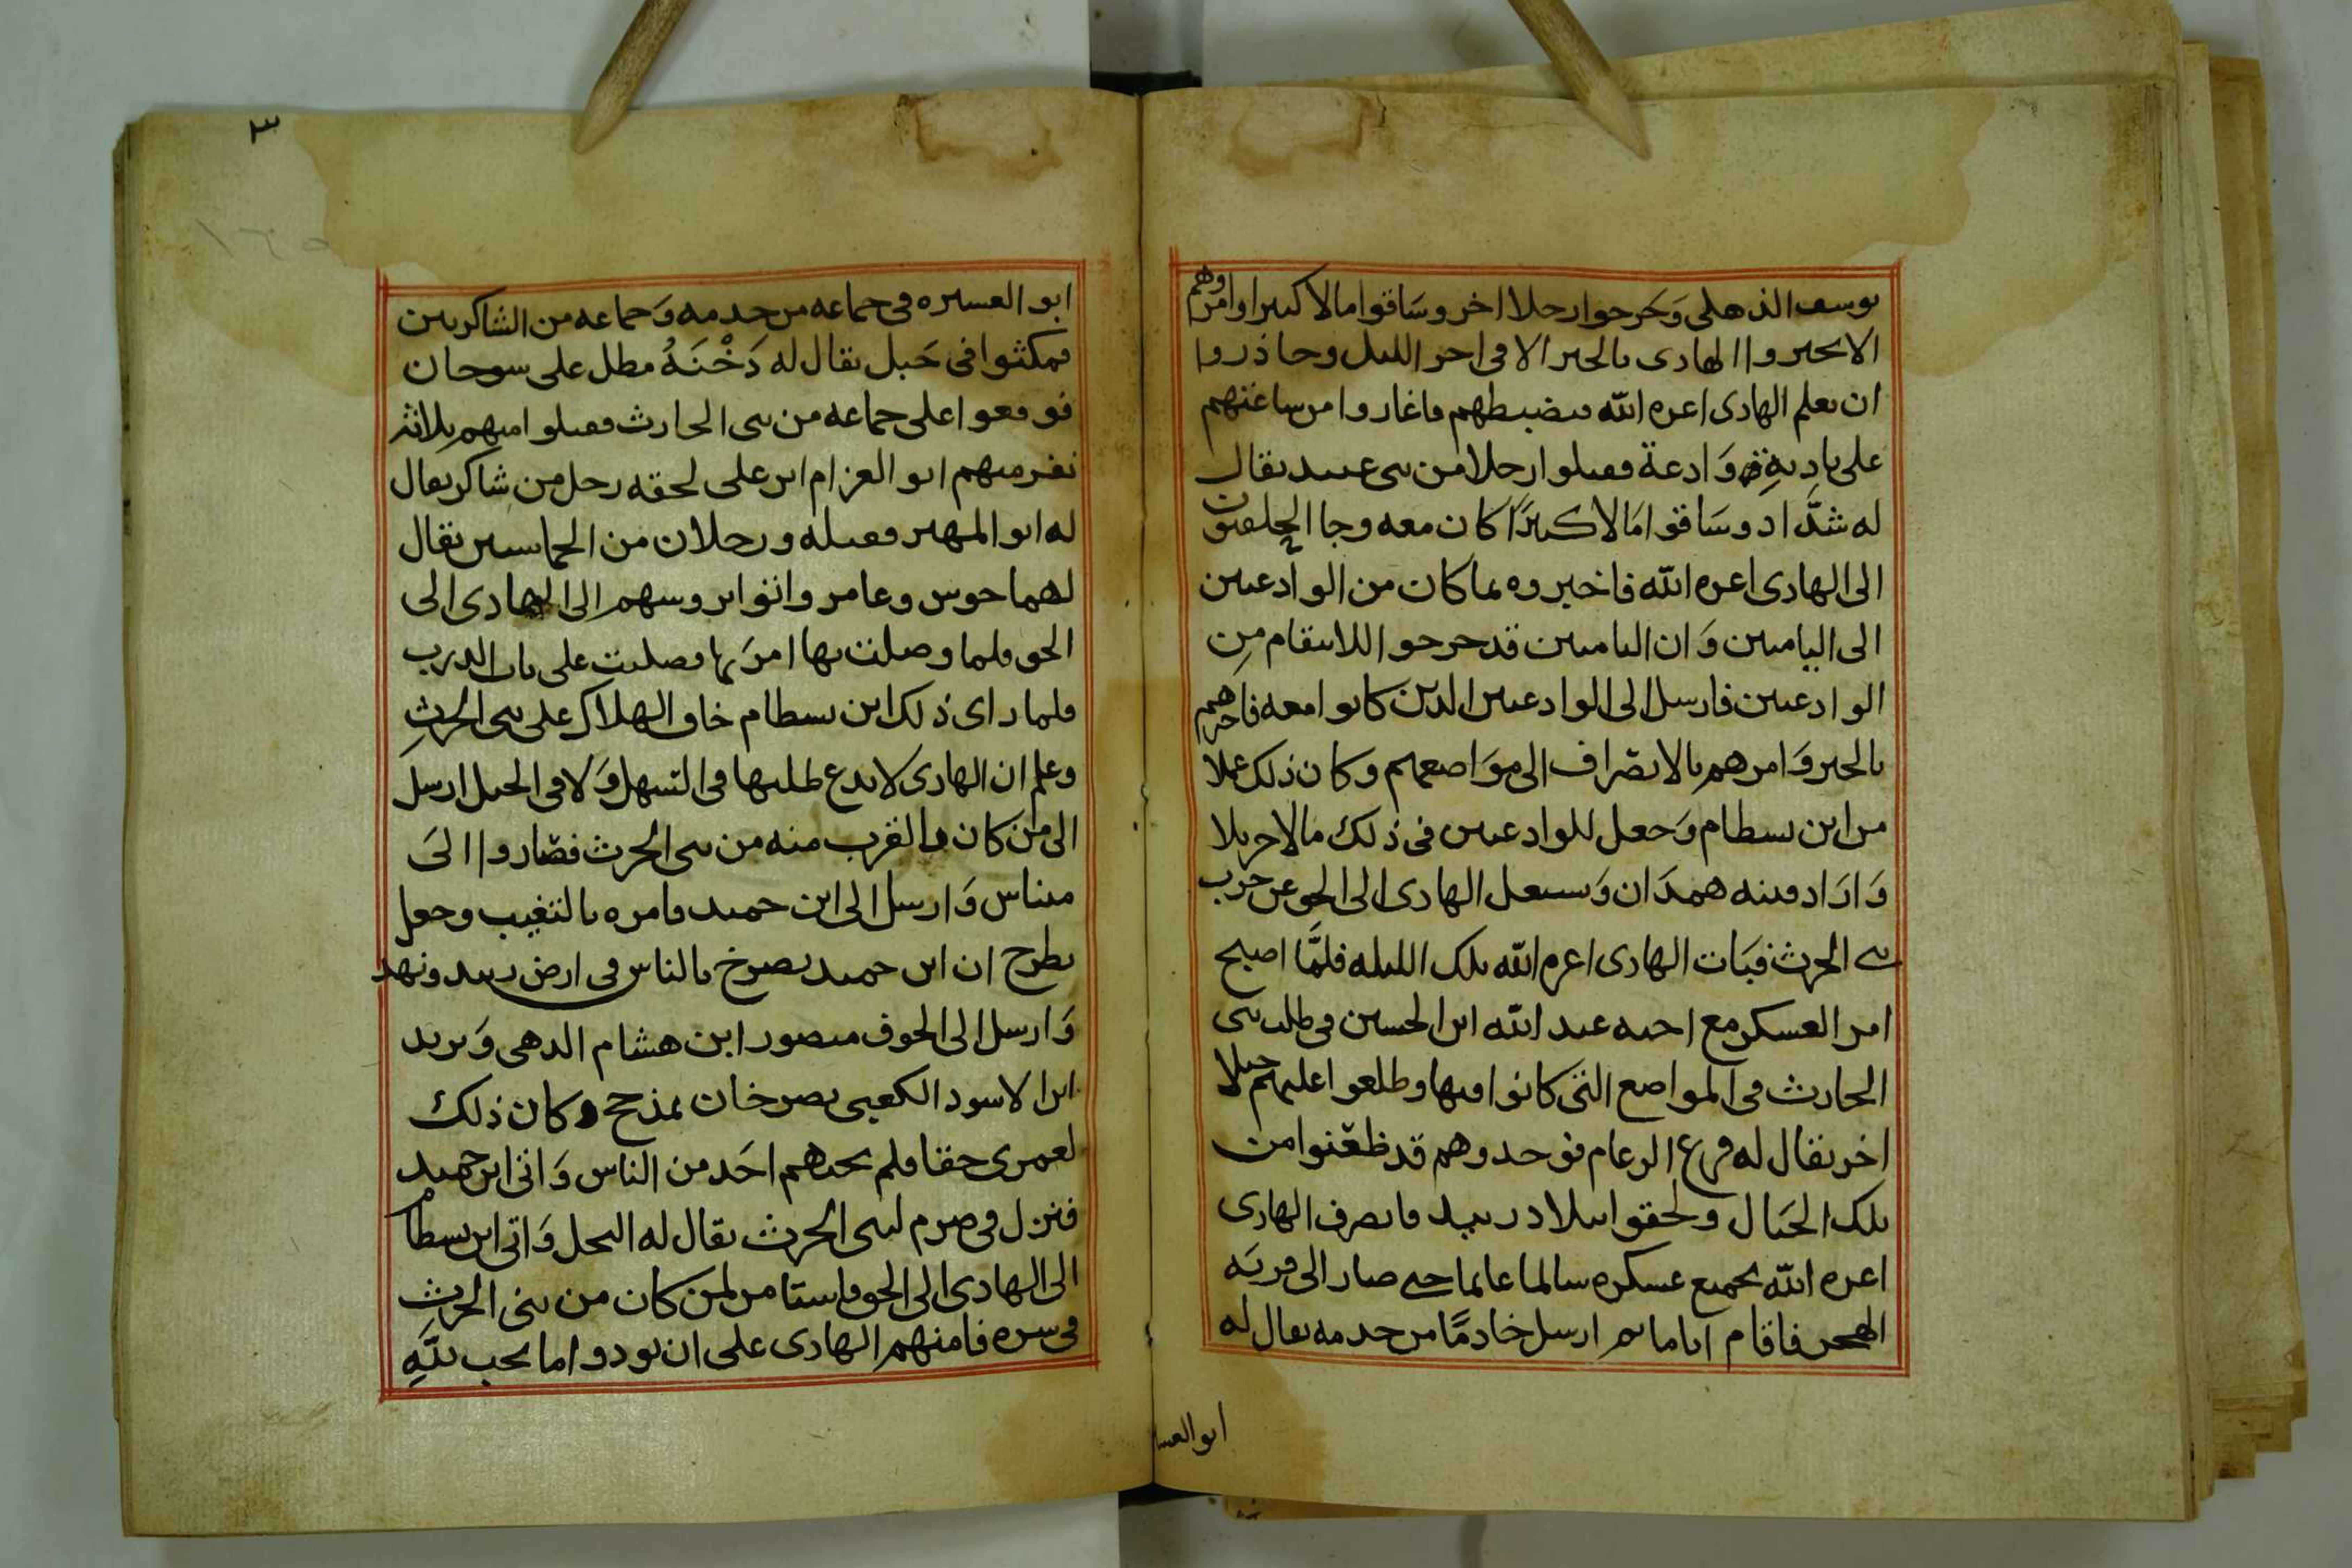 يوسف الذهلي وَخرجوا رحلا اخر وسَاقوا مالا كبيرا وامروهم
الا يخبروا الهادي بالخبر الا في اخر الليل وحاذروا
ان يعلم الهادي اعزه الله فيضبطهم فاغاروا من ساعتهم
على باديةٍ وَادعة فقتلوا رجلا من بني عبيد يقال
له شدَّاد وسَاقوا مَالا كبيرًا كان معه وجا
الى الهادي اعزه الله فاخبروه بما كان من الوادعيين
الى الياميين وَان الياميين قد خرجوا للانتقام مِن
الوادعيين فارسل الى الوادعيين الذين كانوا معه فاخبرهم
بالخبر وَامرهم بالانصراف الى موَاضعهم وكان ذلك عملا
من ابن بسطام وَجعل للوادعيين في ذلك مالا جزيلا
وَارَاد فتنه همدَان وَيشغل الهادي الى الحق عن حرب
بني الحرث فبَات الهادي اعزه الله تلك الليله فلمَّا اصبح
امر العسكر مع اخيه عبد الله ابن الحسين في طلب بني
الحارث في المواضع التي كانوا فيها وطلعوا عليهم جبلا
اخر يقال له فرع الرعام فوجدوهم قد ظعنوا من
تلك الجبَال ولحقوا ببلاد زبيد فانصرف الهادي
اعزه الله بجميع عسكره سالما غانما حتى صار الى قريَه
الهجر فاقام اياما ثم ارسل خادمًا من خدمه يقال له
ابو العسا
٣
ابو العسيره في جماعه من خدمه وَجماعه من الشاكريين
فمكثوا في جَبل يقال له دَخْنَهُ مطل على سوحان
فوقعوا على جماعه من بني الحارث فقتلوا منهم ثلاثه
نفر منهم ابو العزام ابن علي لحقه رجل من شاكر يقال
له ابو المهير فقتله ورجلان من الحماسيين يقال
لهما حوس وعامر واتوا بروسهم الى الهادي الى
الحق فلما وصلت بها امرَ بها فصلبت على باب الدرب
فلما راى ذلك ابن بسطام خاف الهلاك على بني الحرثِ
وعلم ان الهادي لا يدع طلبها في السّهل وَلا في الجبل ارسل
الى من كان بالقرب منه من بني الحرث فصَاروا الىَ
ميناس وَارسل الى ابن حميد فامره بالتغيب وجعل
يطرح ان ابن حميد يصرخ بالناس في ارض زبيد ونهد
وَارسل الى الحوف منصور ابن هشام الدهي وَيزيد
ابن الاسود الكعبي يصرخان بمذحج وكان ذلك
لعمري حقا فلم يجبهم احَد من الناس وَاتى ابن حميد
فنزل في صرم لبني الحرث يقال له النحل وَاتى ابن بسطام
الى الهادي الى الحق فاستامن لمن كان من بنى الحرثِ
في سره فامنهم الهادي على ان يودوا ما يجب للّهِ